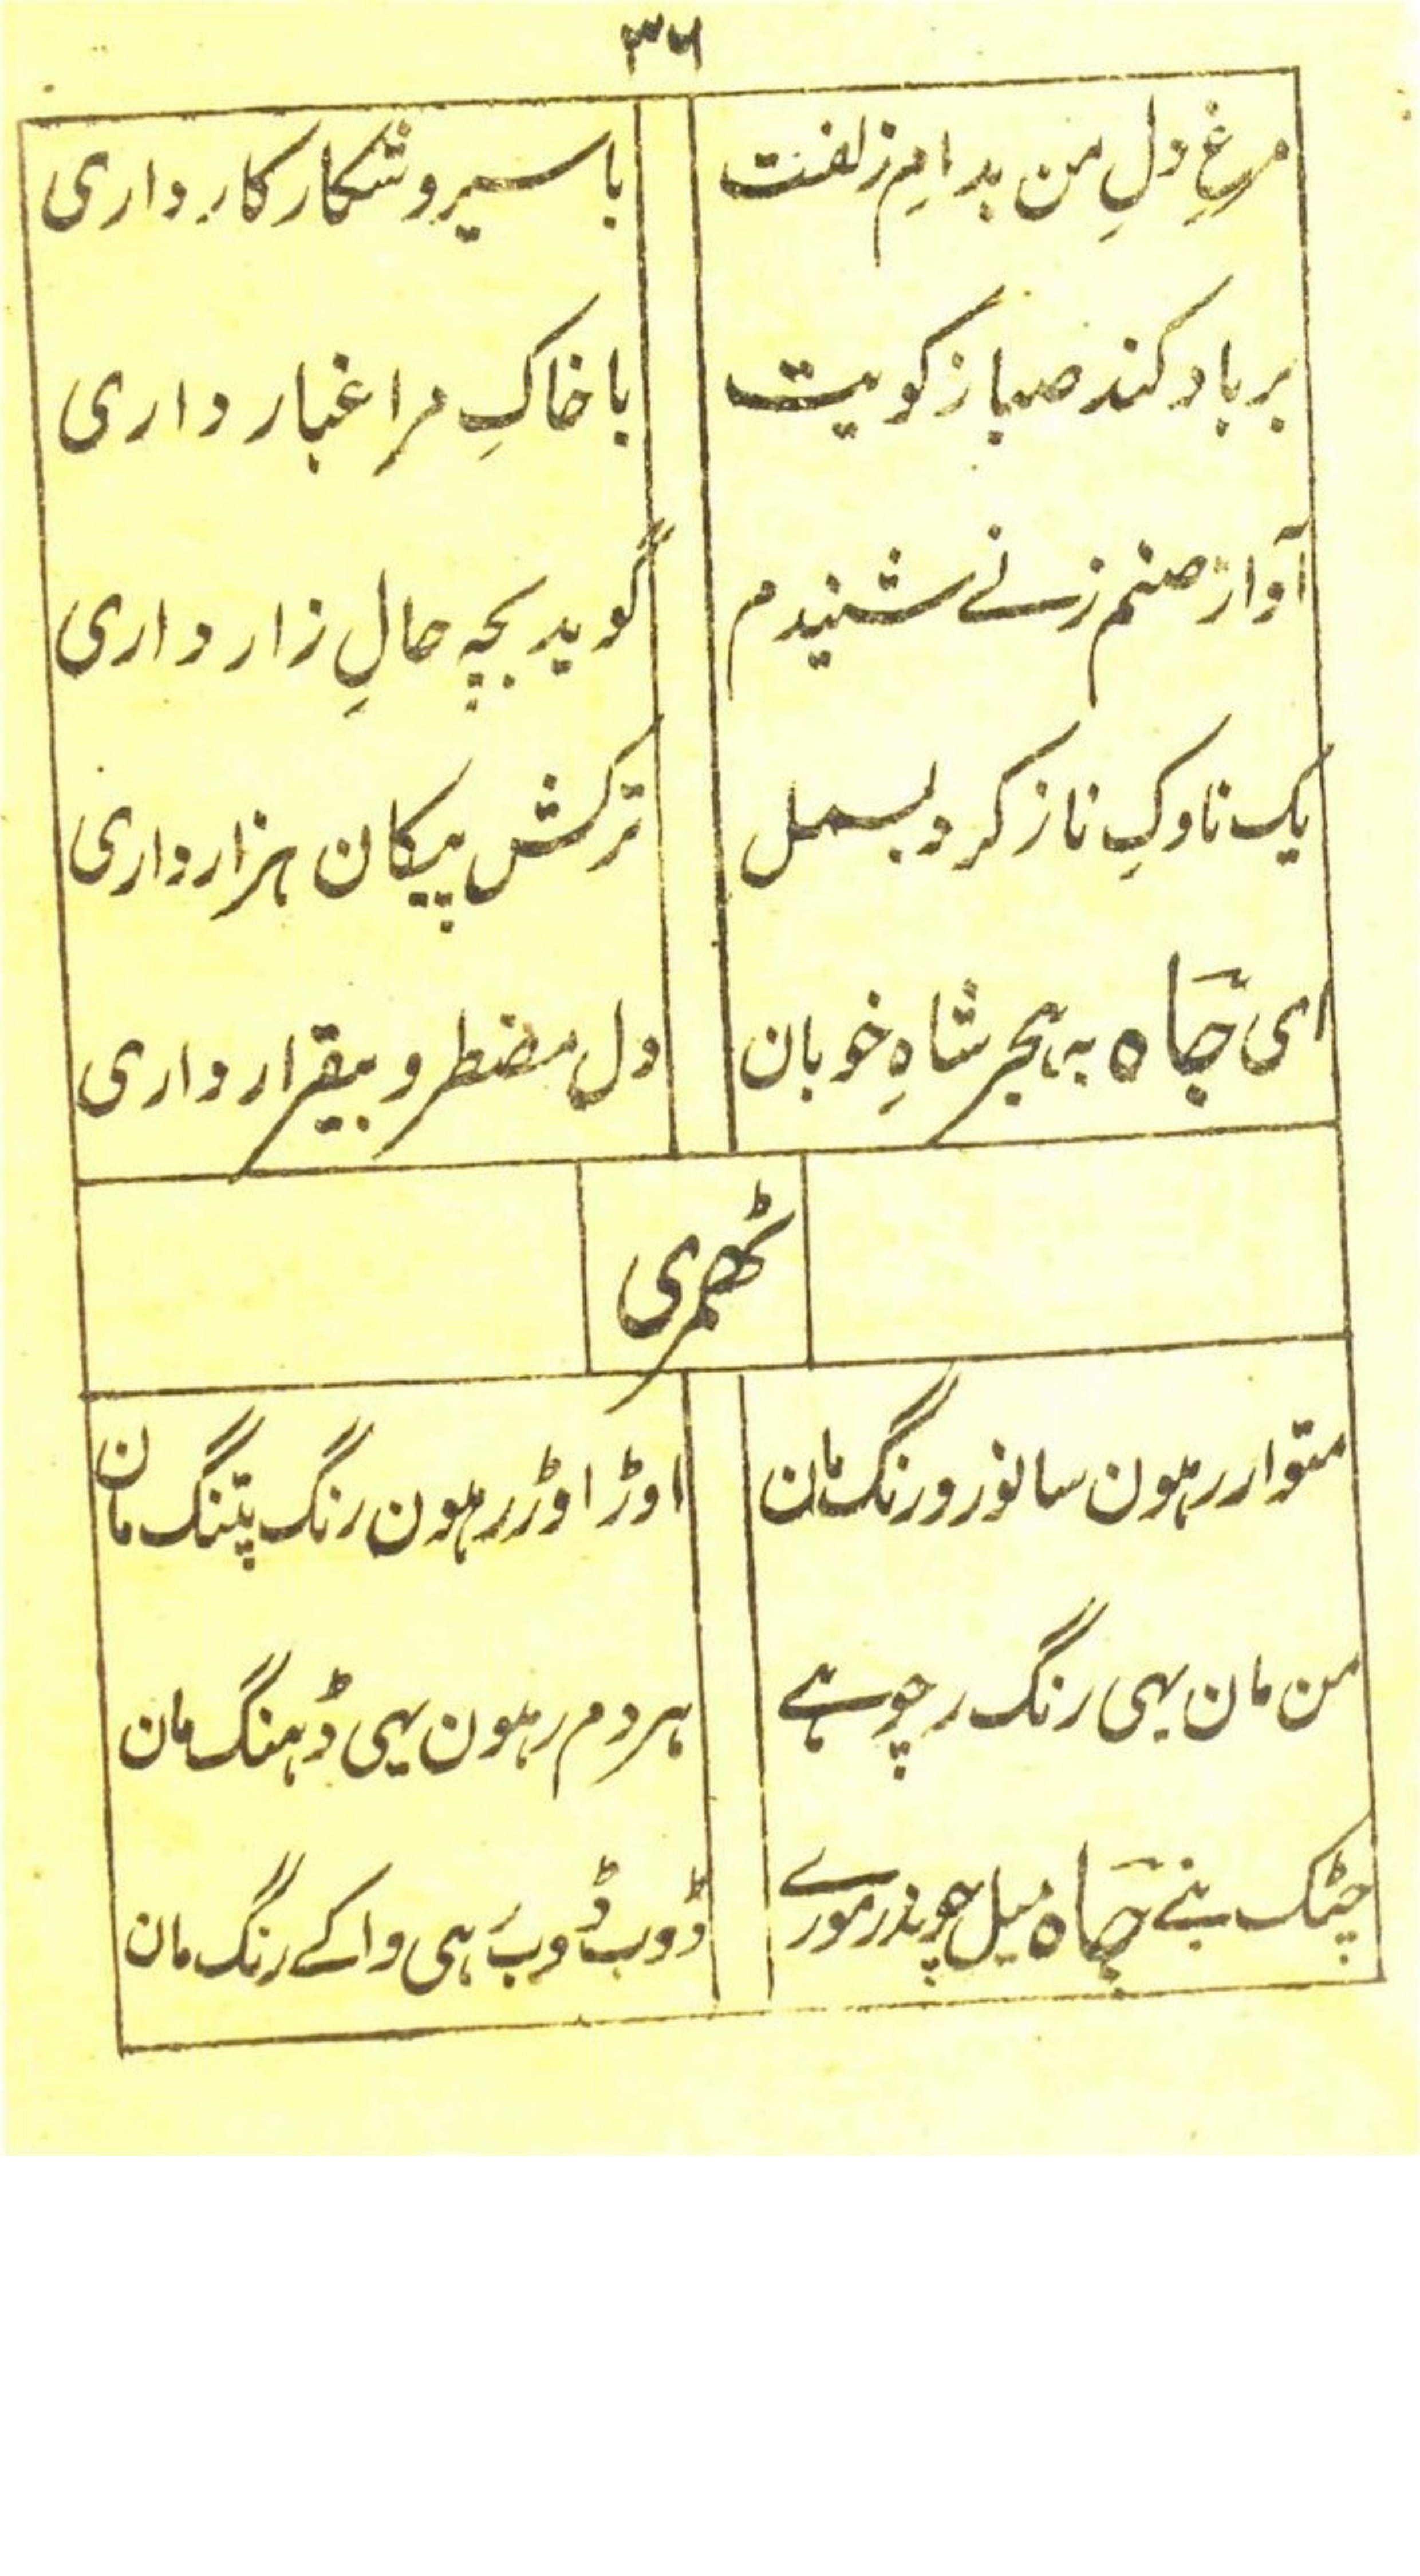 ۳۶
مرغِ دلِ من بدامِ زلفت باسیر و شکار کار داری
برباد کند صبا ز کویت با خاکِ مرا غبار داری
آواز صنم ز نے شنیدم گوید بچہ حالِ زار داری
یک ناوکِ ناز کرد بسمل ترکش پیکان ہزار داری
ای جاہ بہ ہجر شاہِ خوبان دل مضطر و بیقرار داری
ٹھمری
متوار رہون سانورو رنگ مان اوڑ اوڑ رہون رنگ پتنگ مان
من مان یہی رنگ رچو ہے ہر دم رہون یہی ڈہنگ مان
چٹک بنے جاہ میل چوندر مورے ڈوب ڈوب رہی واکے رنگ مان